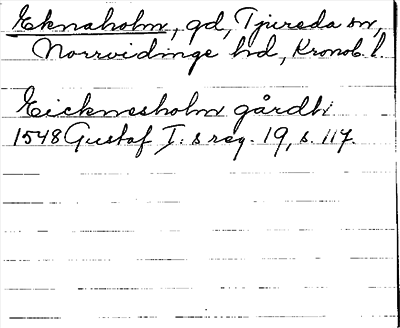 Eknaholm, gd, Tjureda sn,
Norrvidinge hd, Kronob. l.
Eicknesholm gårdh
1548 Gustaf I:s reg. 19, s. 117.